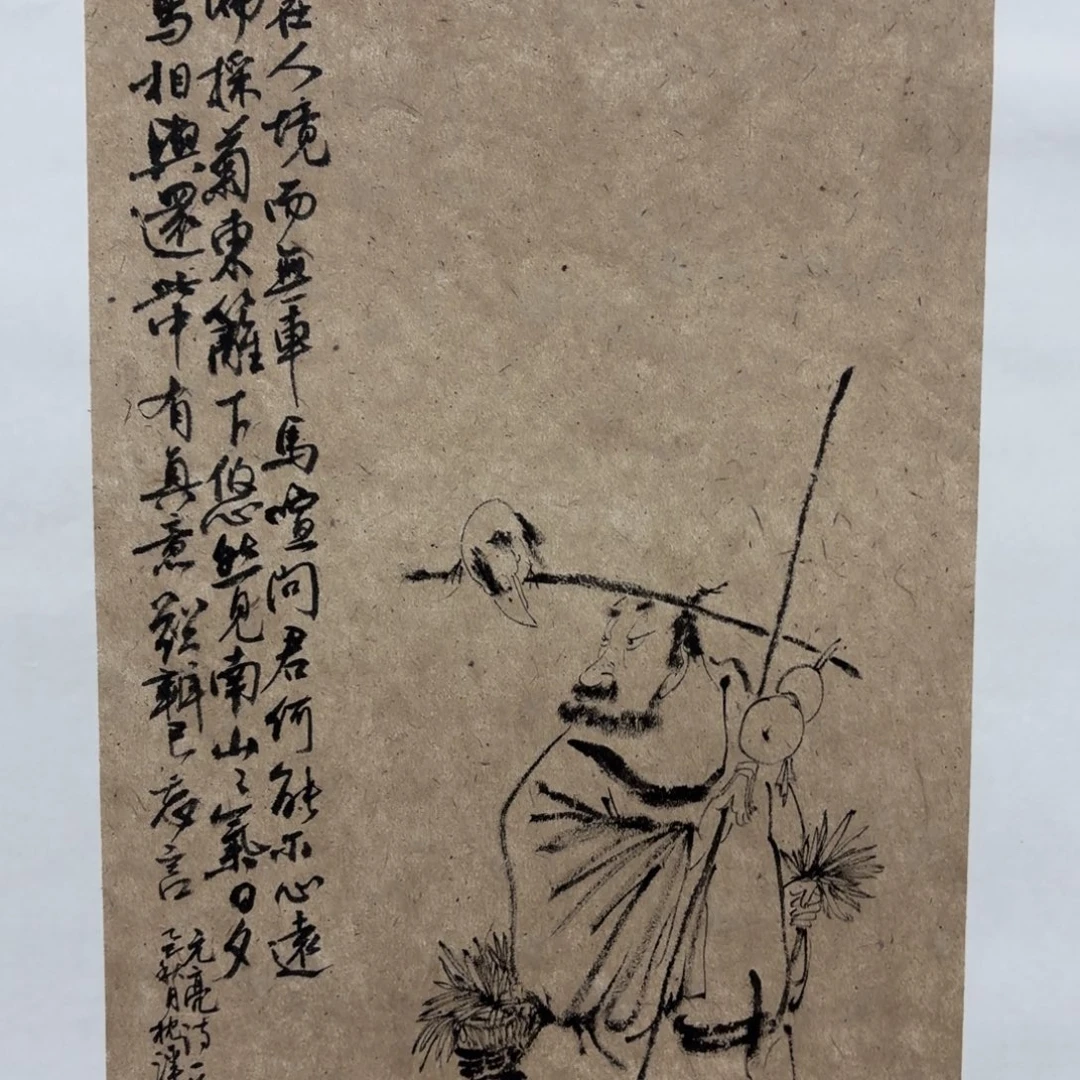 在人境而無車馬喧問君何能尔心遠
偏採菊東籬下悠然見南山〻氣日夕
鳥相與還此中有真意欲辨已忘言
元亮詩一
乙巳秋月枕溪